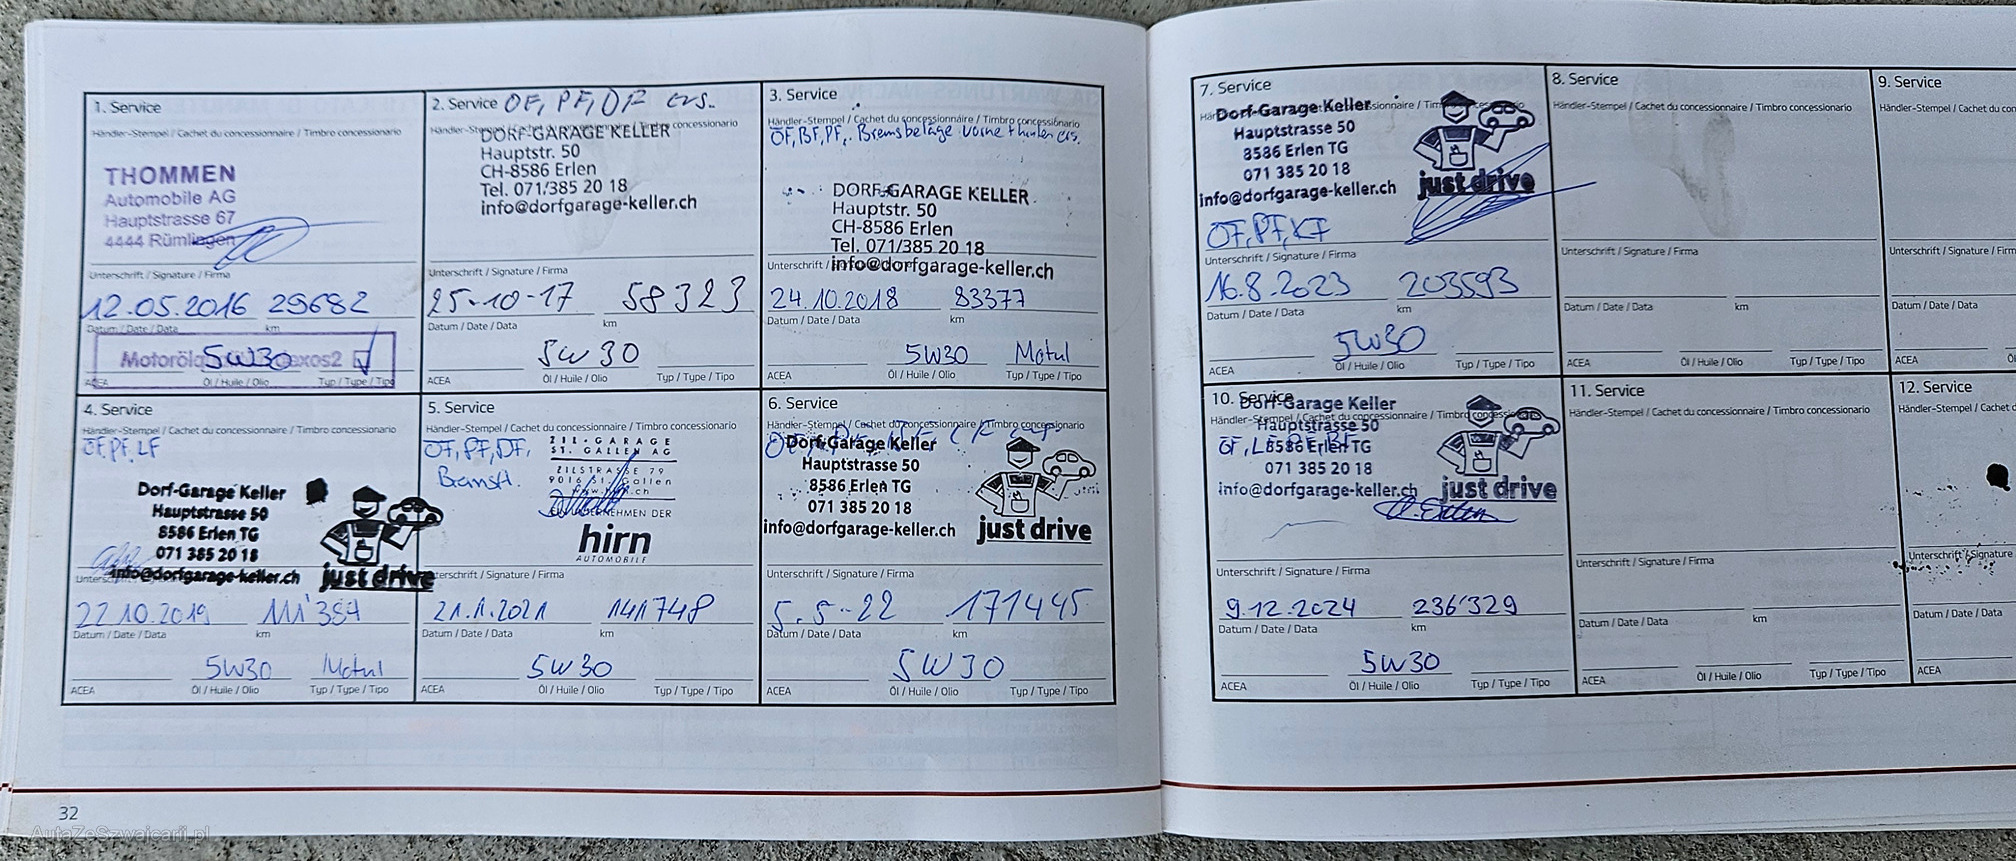 1. Service
Händler-Stempel / Cachet du concessionnaire / Timbro concessionario
THOMMEN
Automobile AG
Hauptstrasse 67
4444 Rümlingen
Unterschrift / Signature / Firma
12.05.2016 29682
Datum / Date / Data km
Motoröl 5W30 dexos2
ACEA Öl / Huile / Olio Typ / Type / Tipo
2. Service ÖF, PF, DF ers.
Händler-Stempel / Cachet du concessionnaire / Timbro concessionario
DORF-GARAGE KELLER
Hauptstr. 50
CH-8586 Erlen
Tel. 071/385 20 18
info@dorfgarage-keller.ch
Unterschrift / Signature / Firma
25-10-17 58323
Datum / Date / Data km
5W30
ACEA Öl / Huile / Olio Typ / Type / Tipo
3. Service
Händler-Stempel / Cachet du concessionnaire / Timbro concessionario
ÖF, BF, PF, Bremsbeläge vorne + hinten ers.
DORF-GARAGE KELLER
Hauptstr. 50
CH-8586 Erlen
Tel. 071/385 20 18
info@dorfgarage-keller.ch
Unterschrift /
24.10.2018 83377
Datum / Date / Data km
5W30 Motul
ACEA Öl / Huile / Olio Typ / Type / Tipo
4. Service
Händler-Stempel / Cachet du concessionnaire / Timbro concessionario
ÖF, PF, LF
Dorf-Garage Keller
Hauptstrasse 50
8586 Erlen TG
071 385 20 18
info@dorfgarage-keller.ch
just drive
22.10.2019 111'384
Datum / Date / Data km
5W30 Motul
ACEA Öl / Huile / Olio Typ / Type / Tipo
5. Service
Händler-Stempel / Cachet du concessionnaire / Timbro concessionario
ÖF, PF, DF,
Bremsfl.
ZIL-GARAGE
ST. GALLEN AG
ZILSTRASSE 79
9016 St. Gallen
hirn
AUTOMOBILE
Unterschrift / Signature / Firma
21.1.2021 141748
Datum / Date / Data km
5W30
ACEA Öl / Huile / Olio Typ / Type / Tipo
6. Service
Händler-Stempel / Cachet du concessionnaire / Timbro concessionario
Dorf-Garage Keller
Hauptstrasse 50
8586 Erlen TG
071 385 20 18
info@dorfgarage-keller.ch
just drive
Unterschrift / Signature / Firma
5.5-22 171445
Datum / Date / Data km
5W30
ACEA Öl / Huile / Olio Typ / Type / Tipo
32
AutaZeSzwajcarii.pl
7. Service
Dorf-Garage Keller
Hauptstrasse 50
8586 Erlen TG
071 385 20 18
info@dorfgarage-keller.ch
just drive
ÖF, PF, KF
Unterschrift / Signature / Firma
16.8.2023 203593
Datum / Date / Data km
5W30
ACEA Öl / Huile / Olio Typ / Type / Tipo
8. Service
Händler-Stempel / Cachet du concessionnaire / Timbro concessionario
Unterschrift / Signature / Firma
Datum / Date / Data km
ACEA Öl / Huile / Olio Typ / Type / Tipo
9. Service
Händler-Stempel / Cachet du
Unterschrift / Signature / Firm
Datum / Date / Data
ACEA
10. Service
Händler-Stempel / Cachet du concessionnaire / Timbro
Dorf-Garage Keller
Hauptstrasse 50
8586 Erlen TG
071 385 20 18
info@dorfgarage-keller.ch
just drive
Unterschrift / Signature / Firma
9.12.2024 236'329
Datum / Date / Data km
5W30
ACEA Öl / Huile / Olio Typ / Type / Tipo
11. Service
Händler-Stempel / Cachet du concessionnaire / Timbro concessionario
Unterschrift / Signature / Firma
Datum / Date / Data km
ACEA Öl / Huile / Olio Typ / Type / Tipo
12. Service
Händler-Stempel / Cachet
Unterschrift / Signature
Datum / Date / Data
ACEA